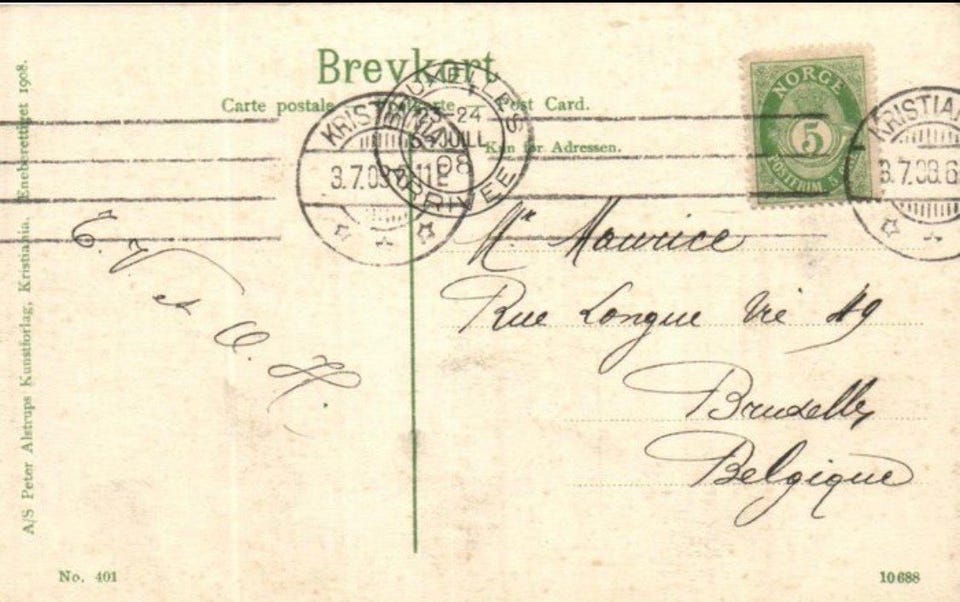 Brevkort
Carte postale. Post Card.
Kun for Adressen.
NORGE
5
KRISTIANIA
3.7.08 11 E
BRUXELLES
-24
JUILL
08
ARRIVEE
KRISTIANIA
3.7.08.6
Mr. Maurice
Rue Longue Vie 49
Bruxelles
Belgique
C. V. et O. H.
A/S Peter Alstrups Kunstforlag, Kristiania. Eneberettiget 1908.
No. 401
10688